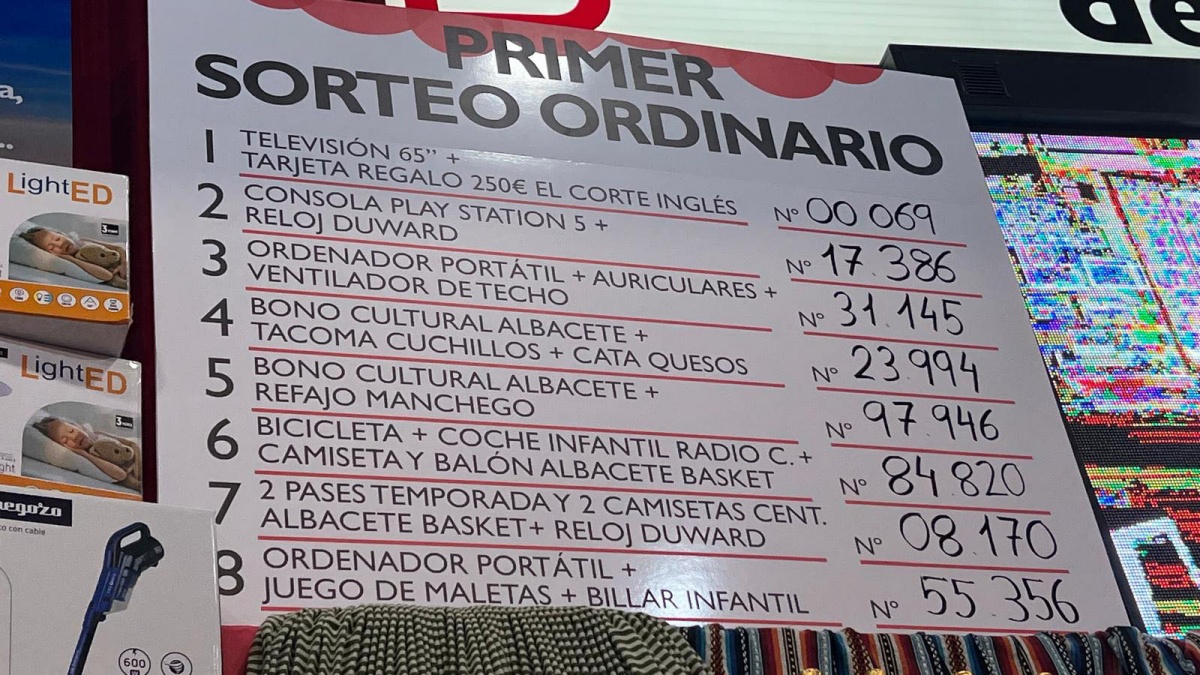 de
a,
PRIMER
SORTEO ORDINARIO
1 TELEVISIÓN 65” +
TARJETA REGALO 250€ EL CORTE INGLÉS Nº 00 069
2 CONSOLA PLAY STATION 5 +
RELOJ DUWARD Nº 17.386
3 ORDENADOR PORTÁTIL + AURICULARES +
VENTILADOR DE TECHO Nº 31.145
4 BONO CULTURAL ALBACETE +
TACOMA CUCHILLOS + CATA QUESOS Nº 23.994
5 BONO CULTURAL ALBACETE +
REFAJO MANCHEGO Nº 97.946
6 BICICLETA + COCHE INFANTIL RADIO C. +
CAMISETA Y BALÓN ALBACETE BASKET Nº 84.820
7 2 PASES TEMPORADA Y 2 CAMISETAS CENT.
ALBACETE BASKET+ RELOJ DUWARD Nº 08.170
8 ORDENADOR PORTÁTIL +
JUEGO DE MALETAS + BILLAR INFANTIL Nº 55.356
LightED
LightED
con cable
600